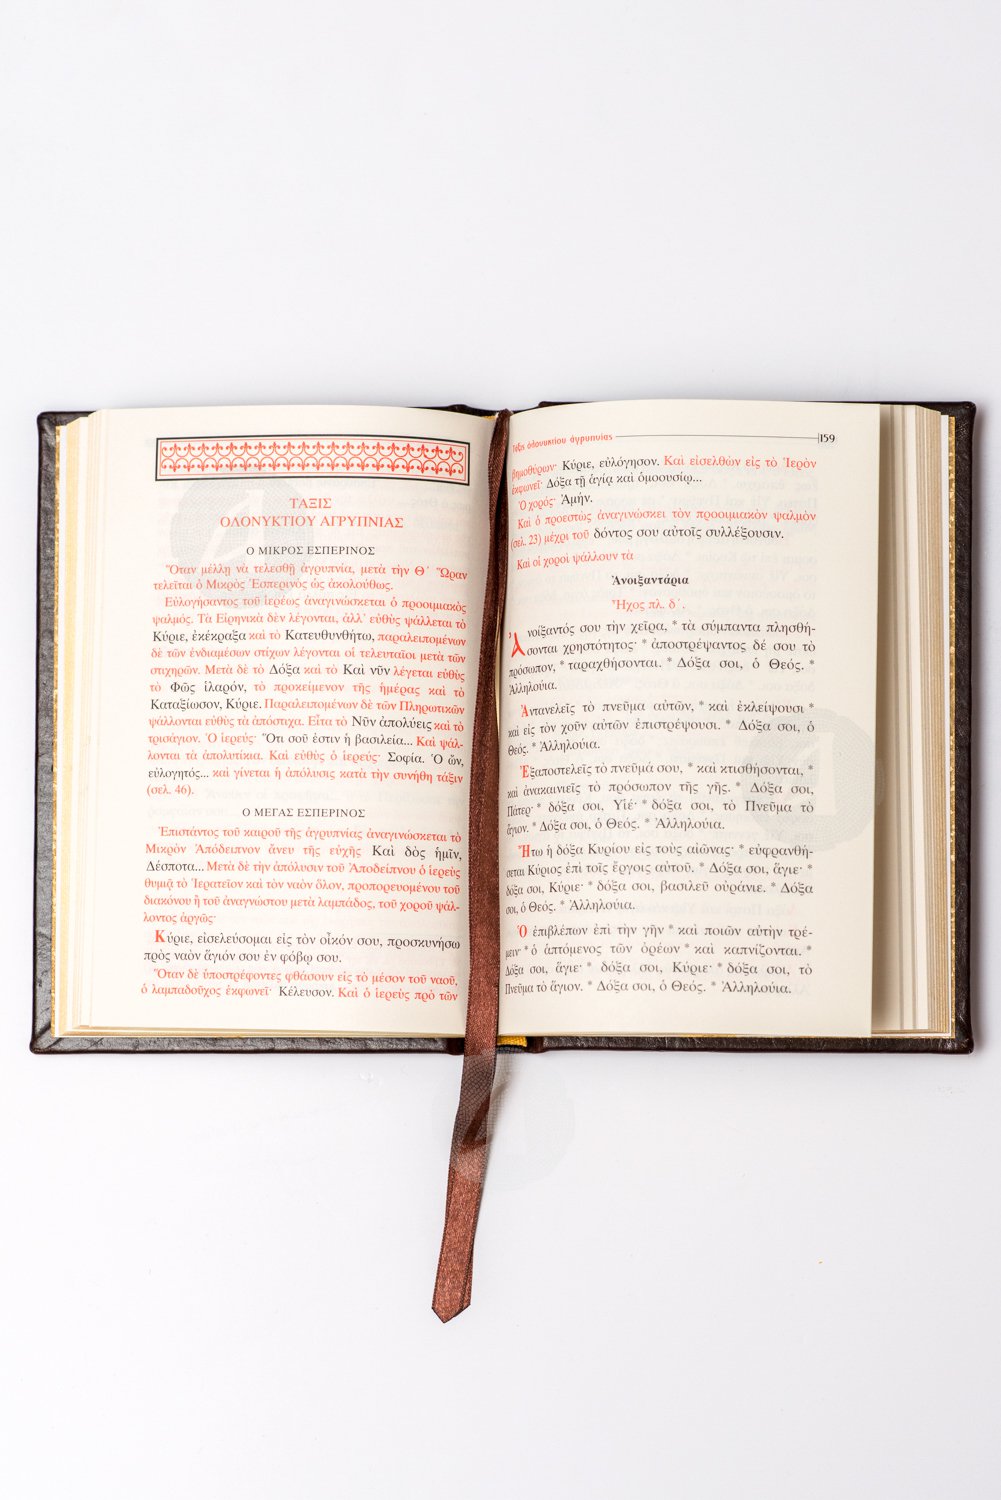 ΤΑΞΙΣ
ΟΛΟΝΥΚΤΙΟΥ ΑΓΡΥΠΝΙΑΣ
Ο ΜΙΚΡΟΣ ΕΣΠΕΡΙΝΟΣ
Ὅταν μέλλῃ νὰ τελεσθῇ ἀγρυπνία, μετὰ τὴν Θ΄ Ὥραν
τελεῖται ὁ Μικρὸς Ἑσπερινὸς ὡς ἀκολούθως.
Εὐλογήσαντος τοῦ ἱερέως ἀναγινώσκεται ὁ προοιμιακὸς
ψαλμός. Τὰ Εἰρηνικὰ δὲν λέγονται, ἀλλ᾽ εὐθὺς ψάλλεται τὸ
Κύριε, ἐκέκραξα καὶ τὸ Κατευθυνθήτω, παραλειπομένων
δὲ τῶν ἐνδιαμέσων στίχων λέγονται οἱ τελευταῖοι μετὰ τῶν
στιχηρῶν. Μετὰ δὲ τὸ Δόξα καὶ τὸ Καὶ νῦν λέγεται εὐθὺς
τὸ Φῶς ἱλαρόν, τὸ προκείμενον τῆς ἡμέρας καὶ τὸ
Καταξίωσον, Κύριε. Παραλειπομένων δὲ τῶν Πληρωτικῶν
ψάλλονται εὐθὺς τὰ ἀπόστιχα. Εἶτα τὸ Νῦν ἀπολύεις καὶ τὸ
τρισάγιον. Ὁ ἱερεύς· Ὅτι σοῦ ἐστιν ἡ βασιλεία... Καὶ ψάλ-
λονται τὰ ἀπολυτίκια. Καὶ εὐθὺς ὁ ἱερεύς· Σοφία. Ὁ ὤν,
εὐλογητός... καὶ γίνεται ἡ ἀπόλυσις κατὰ τὴν συνήθη τάξιν
(σελ. 46).
Ο ΜΕΓΑΣ ΕΣΠΕΡΙΝΟΣ
Ἐπιστάντος τοῦ καιροῦ τῆς ἀγρυπνίας ἀναγινώσκεται τὸ
Μικρὸν Ἀπόδειπνον ἄνευ τῆς εὐχῆς Καὶ δὸς ἡμῖν,
Δέσποτα... Μετὰ δὲ τὴν ἀπόλυσιν τοῦ Ἀποδείπνου ὁ ἱερεὺς
θυμιᾷ τὸ Ἱερατεῖον καὶ τὸν ναὸν ὅλον, προπορευομένου τοῦ
διακόνου ἢ τοῦ ἀναγνώστου μετὰ λαμπάδος, τοῦ χοροῦ ψάλ-
λοντος ἀργῶς·
Κύριε, εἰσελεύσομαι εἰς τὸν οἶκόν σου, προσκυνήσω
πρὸς ναὸν ἅγιόν σου ἐν φόβῳ σου.
Ὅταν δὲ ὑποστρέφοντες φθάσουν εἰς τὸ μέσον τοῦ ναοῦ,
ὁ λαμπαδοῦχος ἐκφωνεῖ· Κέλευσον. Καὶ ὁ ἱερεὺς πρὸ τῶν
Τάξις ὁλονυκτίου ἀγρυπνίας 159
βημοθύρων· Κύριε, εὐλόγησον. Καὶ εἰσελθὼν εἰς τὸ Ἱερὸν
ἐκφωνεῖ· Δόξα τῇ ἁγίᾳ καὶ ὁμοουσίῳ...
Ὁ χορός· Ἀμήν.
Καὶ ὁ προεστὼς ἀναγινώσκει τὸν προοιμιακὸν ψαλμὸν
(σελ. 23) μέχρι τοῦ δόντος σου αὐτοῖς συλλέξουσιν.
Καὶ οἱ χοροὶ ψάλλουν τὰ
Ἀνοιξαντάρια
Ἦχος πλ. δ΄.
Ἀνοίξαντός σου τὴν χεῖρα, * τὰ σύμπαντα πλησθή-
σονται χρηστότητος· * ἀποστρέψαντος δέ σου τὸ
πρόσωπον, * ταραχθήσονται. * Δόξα σοι, ὁ Θεός. *
Ἀλληλούια.
Ἀντανελεῖς τὸ πνεῦμα αὐτῶν, * καὶ ἐκλείψουσι *
καὶ εἰς τὸν χοῦν αὐτῶν ἐπιστρέψουσι. * Δόξα σοι, ὁ
Θεός. * Ἀλληλούια.
Ἐξαποστελεῖς τὸ πνεῦμά σου, * καὶ κτισθήσονται, *
καὶ ἀνακαινιεῖς τὸ πρόσωπον τῆς γῆς. * Δόξα σοι,
Πάτερ· * δόξα σοι, Υἱέ· * δόξα σοι, τὸ Πνεῦμα τὸ
ἅγιον. * Δόξα σοι, ὁ Θεός. * Ἀλληλούια.
Ἤτω ἡ δόξα Κυρίου εἰς τοὺς αἰῶνας· * εὐφρανθή-
σεται Κύριος ἐπὶ τοῖς ἔργοις αὐτοῦ. * Δόξα σοι, ἅγιε· *
δόξα σοι, Κύριε· * δόξα σοι, βασιλεῦ οὐράνιε. * Δόξα
σοι, ὁ Θεός. * Ἀλληλούια.
Ὁ ἐπιβλέπων ἐπὶ τὴν γῆν * καὶ ποιῶν αὐτὴν τρέ-
μειν· * ὁ ἁπτόμενος τῶν ὀρέων * καὶ καπνίζονται. *
Δόξα σοι, ἅγιε· * δόξα σοι, Κύριε· * δόξα σοι, τὸ
Πνεῦμα τὸ ἅγιον. * Δόξα σοι, ὁ Θεός. * Ἀλληλούια.